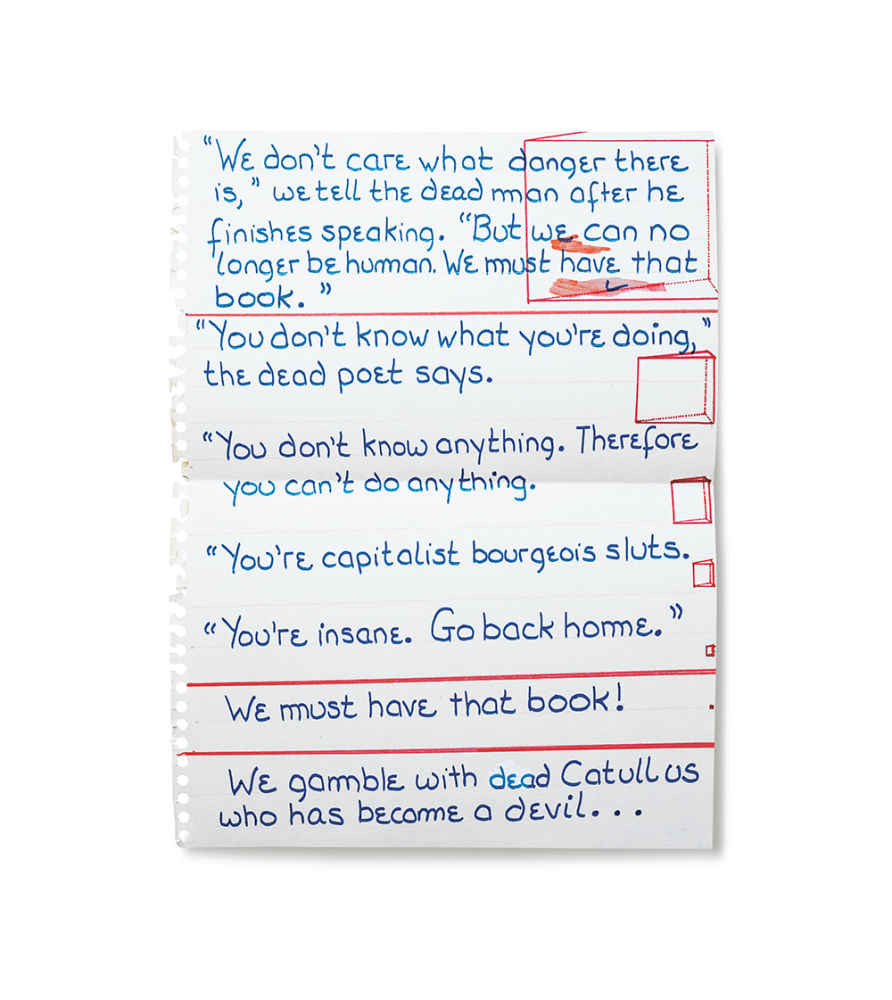 “We don't care what danger there
is,” we tell the dead man after he
finishes speaking. “But we can no
longer be human. We must have that
book.”
“You don't know what you're doing,”
the dead poet says.
“You don't know anything. Therefore
you can't do anything.
“You're capitalist bourgeois sluts.
“You're insane. Go back home.”
We must have that book!
We gamble with dead Catullus
who has become a devil...